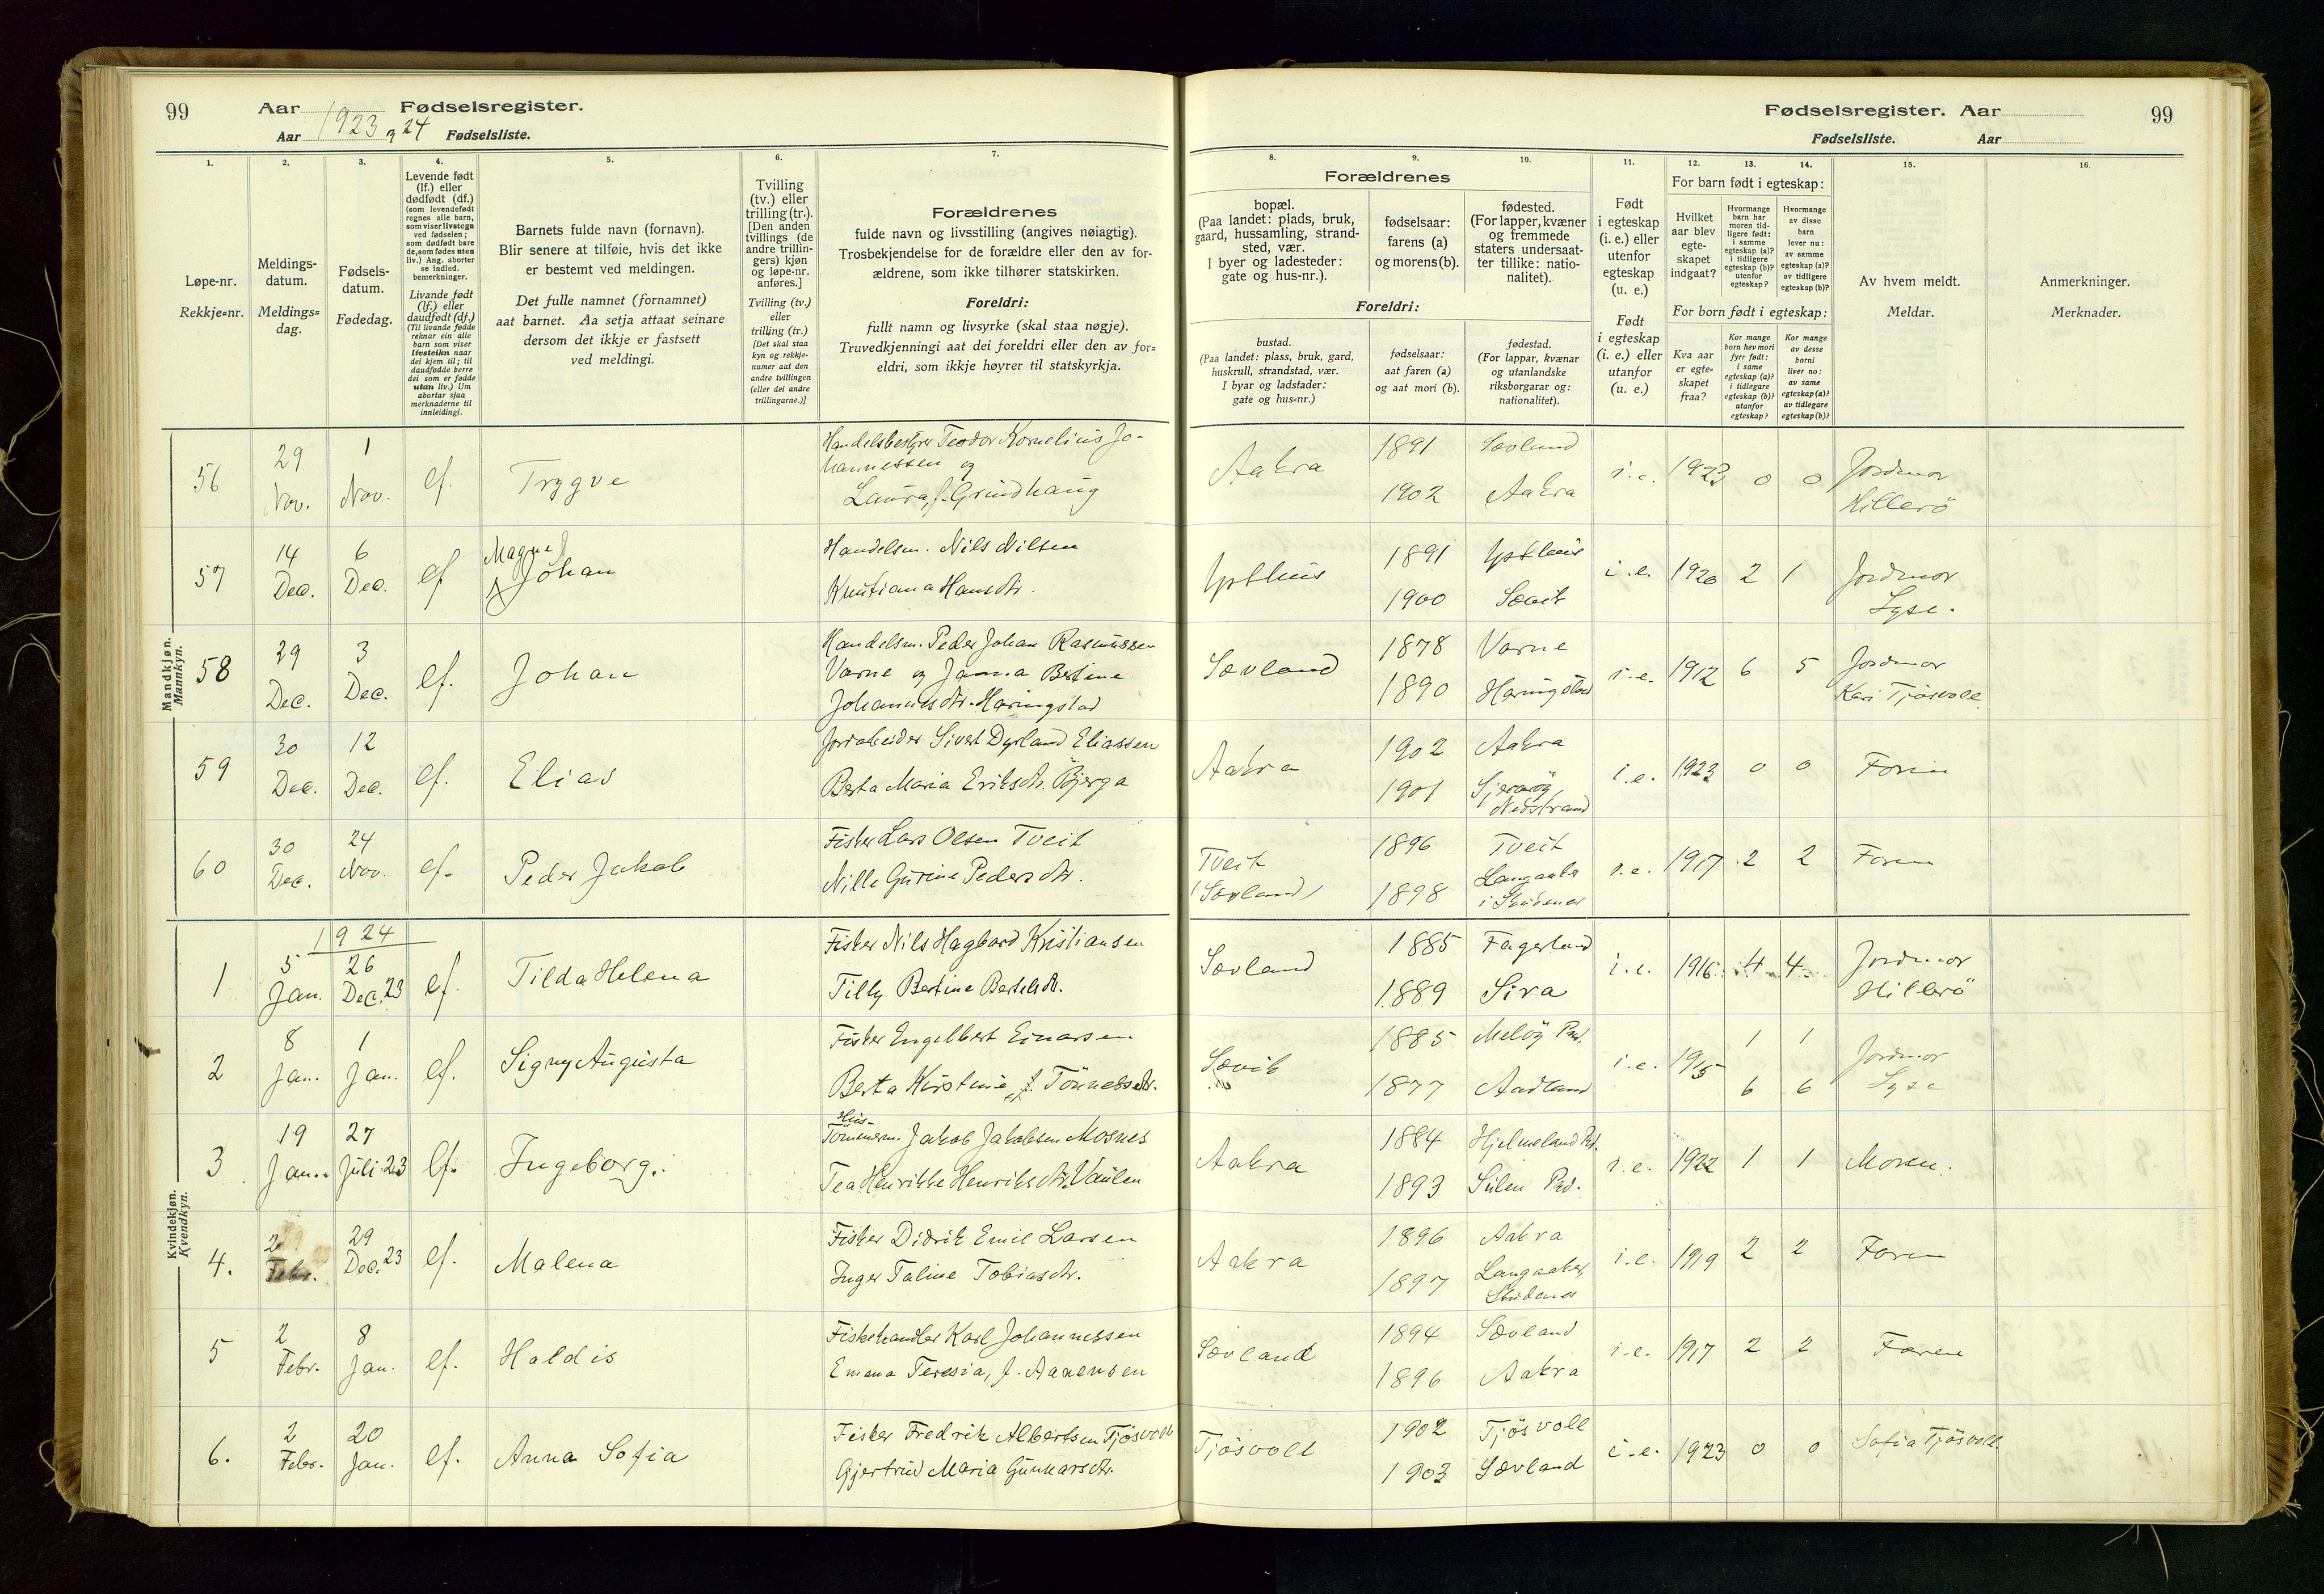 99 Aar 1923 og 24 Fødselsregister.
Aar Fødselsliste.
1. 2. 3. 4. 5. 6. 7.
Løpe-nr.
Rekkje=nr.
Meldings-
datum.
Meldings=
dag.
Fødsels-
datum.
Fødedag.
Levende født
(lf.) eller
dødfødt (df.)
(som levendefødt
regnes alle barn,
som viser livstegn
ved fødselen;
som dødfødt bare
de, som fødes uten
liv.) Ang. aborter
se indled.
bemerkninger.
Livande født
(lf.) eller
daudfødt (df.)
(Til livande fødde
reknar ein alle
barn som viser
livsteikn naar
dei kjem til; til
daudfødde berre
dei som er fødde
utan liv.) Um
abortar sjaa
merknaderne til
innleidingi.
Barnets fulde navn (fornavn).
Blir senere at tilføie, hvis det ikke
er bestemt ved meldingen.
Det fulle namnet (fornamnet)
aat barnet. Aa setja attaat seinare
dersom det ikkje er fastsett
ved meldingi.
Tvilling
(tv.) eller
trilling (tr.).
[Den anden
tvillings (de
andre trillin-
gers) kjøn
og løpe-nr.
anføres.]
Tvilling (tv.)
eller
trilling (tr.)
[Det skal staa
kyn og rekkje-
numer aat den
andre tvillingen
(eller dei andre
trillingarne.)]
Forældrenes
fulde navn og livsstilling (angives nøiagtig).
Trosbekjendelse for de forældre eller den av for-
ældrene, som ikke tilhører statskirken.
Foreldri:
fullt namn og livsyrke (skal staa nøgje).
Truvedkjenningi aat dei foreldri eller den av for=
eldri, som ikkje høyrer til statskyrkja.
Mandkjøn.
Mannkyn.
56 29 Nov. 1 Nov. lf. Trygve
Handelsbestyrer Teodor Kornelius Jo-
hannessen og
Laura, f. Grindhaug
57 14 Dec. 6 Dec. lf Magne
Johan
Handelsm. Nils Nilsen
Kristiana Hansdtr.
58 29 Dec. 3 Dec. lf. Johan
Handelsm. Peder Johan Rasmussen
Varne og Janna Bertine
Johannesdtr. Haringstad
59 30 Dec. 12 Dec. lf. Elias
Jordarbeider Sivert Dyrland Eliassen
Berta Maria Eriksdtr. Bjerga
60 30 Dec. 24 Nov. lf. Peder Jakob
Fisker Lars Olsen Tveit
Nille Gurine Pedersdtr.
Kvindekjøn.
Kvendkyn.
1924
1 5 Jan. 26 Dec. 23 lf. Tilda Helena
Fisker Nils Hagbard Kristiansen
Tilly Bertine Bertelsdtr.
2 8 Jan. 1 Jan. lf. Signy Augusta
Fisker Engelbert Einarsen
Berta Kirstine f. Tönnesdtr.
3 19 Jan. 27 Juli 23 lf. Ingeborg.
Hus-
Tömmerm. Jakob Jakobsen Mosnes
Tea Henrikke Henriksdtr. Vaulen
4. 2 Febr. 29 Dec. 23 lf. Malena
Fisker Didrik Emil Larsen
Inger Taline Tobiasdtr.
5 2 Febr. 8 Jan. lf. Haldis
Fiskehandler Karl Johannessen
Emma Teresia, f. Aanensen
6. 2 Febr. 20 Jan. lf. Anna Sofia
Fisker Fredrik Albertsen Tjösvoll
Gjertrud Maria Gunnarsdtr.
Fødselsregister. Aar 99
Fødselsliste. Aar
8. 9. 10. 11. 12. 13. 14. 15. 16.
Forældrenes
bopæl.
(Paa landet: plads, bruk,
gaard, hussamling, strand-
sted, vær.
I byer og ladesteder:
gate og hus-nr.).
fødselsaar:
farens (a)
og morens (b).
fødested.
(For lapper, kvæner
og fremmede
staters undersaat-
ter tillike: natio-
nalitet).
Foreldri:
bustad.
(Paa landet: plass, bruk, gard,
huskrull, strandstad, vær.
I byar og ladstader:
gate og hus=nr.)
fødselsaar:
aat faren (a)
og aat mori (b).
fødestad.
(For lappar, kvænar
og utanlandske
riksborgarar og:
nationalitet).
Født
i egteskap
(i. e.) eller
utenfor
egteskap
(u. e.)
Født
i egteskap
(i. e.) eller
utanfor
(u. e.)
For barn født i egteskap:
Hvilket
aar blev
egte-
skapet
indgaat?
Hvormange
barn har
moren tid-
ligere født:
i samme
egteskap (a)?
i tidligere
egteskap (b)?
utenfor
egteskap?
Hvormange
av disse
barn
lever nu:
av samme
egteskap (a)?
av tidligere
egteskap (b)?
For born født i egteskap:
Kva aar
er egte=
skapet
fraa?
Kor mange
born hev mori
fyrr født:
i same
egteskap (a)?
i tidlegare
egteskap (b)?
utanfor
egteskap?
Kor mange
av desse
borni
liver no:
av same
egteskap (a)?
av tidlegare
egteskap (b)?
Av hvem meldt.
Meldar.
Anmerkninger.
Merknader.
Aakra 1891 Sævland i. e. 1923 0 0 Jordmor
1902 Aakra Hillerö
Ysthus 1891 Ysthus i. e. 1920 2 1 Jordmor
1900 Sævik Lyse.
Sævland 1878 Varne i. e. 1912 6 5 Jordmor
1890 Haringstad Kari Tjösvoll
Aakra 1902 Aakra i. e. 1923 0 0 Faren
1901 Sjerneröy, Nedstrand
Tveit 1896 Tveit i. e. 1917 2 2 Faren
(Sævland) 1898 Langaaker
i Skudenes
Sævland 1885 Fagerland i. e. 1916 4 4 Jordmor
1889 Sira Hillerö
Sævik 1885 Melöy Pd. i. e. 1915 1 1 Jordmor
1877 Aadland 6 6 Lyse
Aakra 1884 Hjelmeland Pd. i. e. 1922 1 1 Moren.
1893 Sulen Pd.
Aakra 1896 Aakra i. e. 1919 2 2 Faren
1897 Langaaker,
Skudenes
Sævland 1894 Sævland i. e. 1917 2 2 Faren
1896 Aakra
Tjösvoll 1902 Tjösvoll i. e. 1923 0 0 Sofia Tjösvoll
1903 Sævland